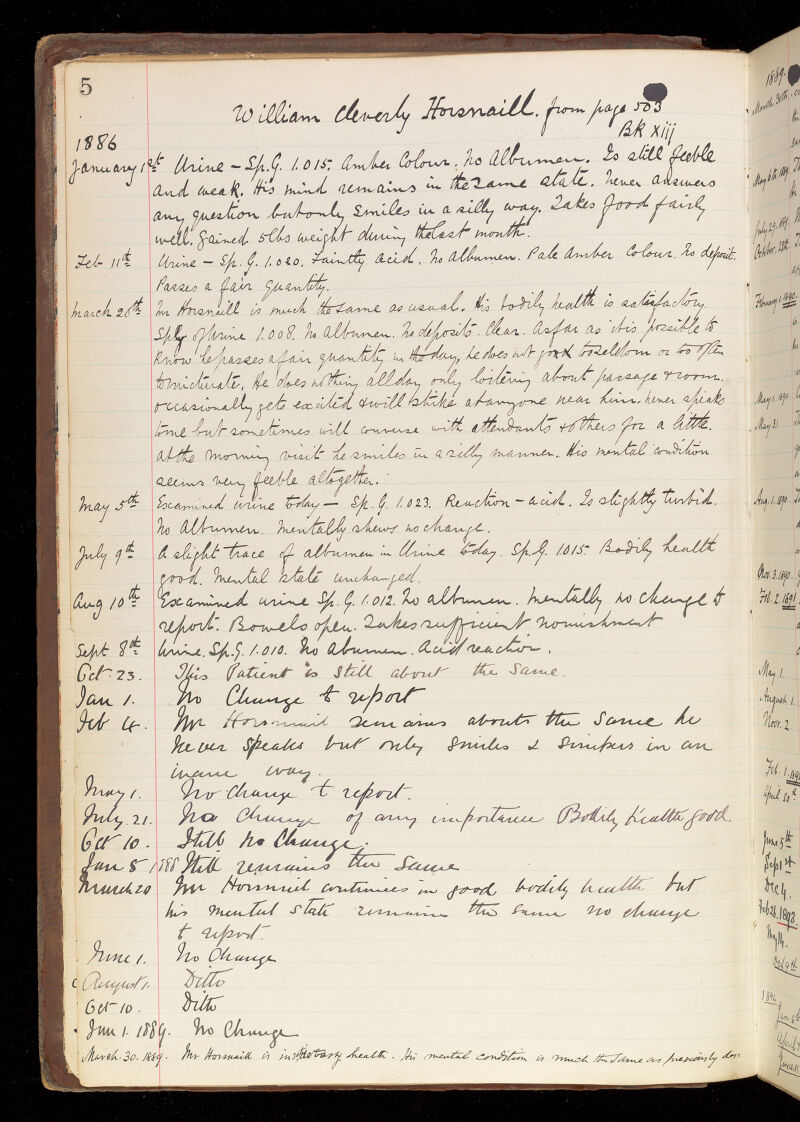 5
William Cleverly Horsnaill. from page 503
Bk xiij
1886
January 1st Urine – Sp. G. 1.015. Amber Colour. No Albumen. Is still feeble
and weak. His mind remains in the same state. Never answers
any question but only smiles in a silly way. Takes food fairly
well. Gained 5 lbs weight during the last month.
Feb 11th Urine – Sp. G. 1.020. Faintly acid. No Albumen. Pale Amber Colour. No deposit.
Passes a fair quantity.
March 20th Mr Horsnaill is much the same as usual. His bodily health is satisfactory.
Sp Gy of Urine 1.008. No Albumen. No deposits. Clear. As far as it is possible to
know he passes a fair quantity in the day, he does not go too seldom or too often
to micturate. He does nothing all day only loitering about passage & room.
occasionally gets excited & will strike at anyone near him. never speaks
to me but sometimes will converse with attendants & others for a little.
At the morning visit he smiles in a silly manner. His mental condition
seems very feeble altogether.
May 5th Examined urine today – Sp. G. 1.023. Reaction – acid. Is slightly turbid.
No Albumen. Mentally shews no change.
July 9th A slight trace of albumen in Urine today. Sp. G. 1015. Bodily health
good. Mental state unchanged.
Aug 10th Examined urine Sp. G. 1.012. No albumen. Mentally no change to
report. Bowels open. Takes sufficient nourishment
Sept 8th Urine. Sp. G. 1.010. No Abumen. Acid reaction.
Oct. 23. This Patient is still about the same.
Jan 1. No Change to report
Feb 4. Mr Horsnail remains about the same he
never speaks but only smiles & simpers in an
inane way.
May 1. No change to report.
July. 21. No change of any importance Bodily health good.
Oct 10. Still no Change.
Jan 5 1888 Still remains the same
March 20 Mr Horsnail continues in good bodily health but
his mental state remains the same no change
to report.
June 1. No Change
August 1. Ditto
Oct 10. Ditto
Jan 1. 1889. No Change
March. 30. 1889. Mr Horsnaill is in health. His mental condition is much the same as previously
1889.
March 30th
May 6th 1889.
July 29. 1889.
October. 28th
February 1. 1890.
May 1. 1890.
May 31.
Aug. 1. 1890
Nov. 3. 1890.
Feb. 2. 1891
May 1.
August 1.
Novr. 2
Feb. 1. 1892
April 30th
June 5th
Sept 1st
Dec 4.
Feb 26. 1893.
May 14.
Oct 9th
1894